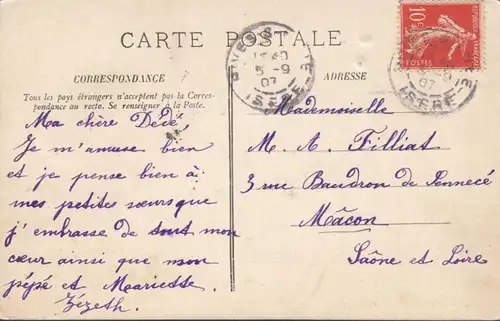 CARTE POSTALE
CORRESPONDANCE
Tous les pays étrangers n'acceptent pas la Corres-
pondance au recto. Se renseigner à la Poste.
Ma chère Dédé
Je m'amuse bien
et je pense bien à
mes petites sœurs que
j'embrasse de tout mon
cœur ainsi que mon
pépé et Mariette
Zézeth.
ADRESSE
Mademoiselle
M. A. Filliat
3 rue Baudron de Sennecé
Mâcon
Saône et Loire
5-9
07
ISERE
10c
POSTES
5-9
07
ISERE